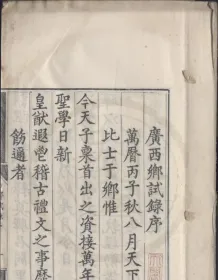 廣西鄉試錄序
萬曆丙子秋八月天下
比士于鄉惟
今天子稟首出之資接萬年
聖學日新
皇猷遐鬯稽古禮文之事歷
飭適者